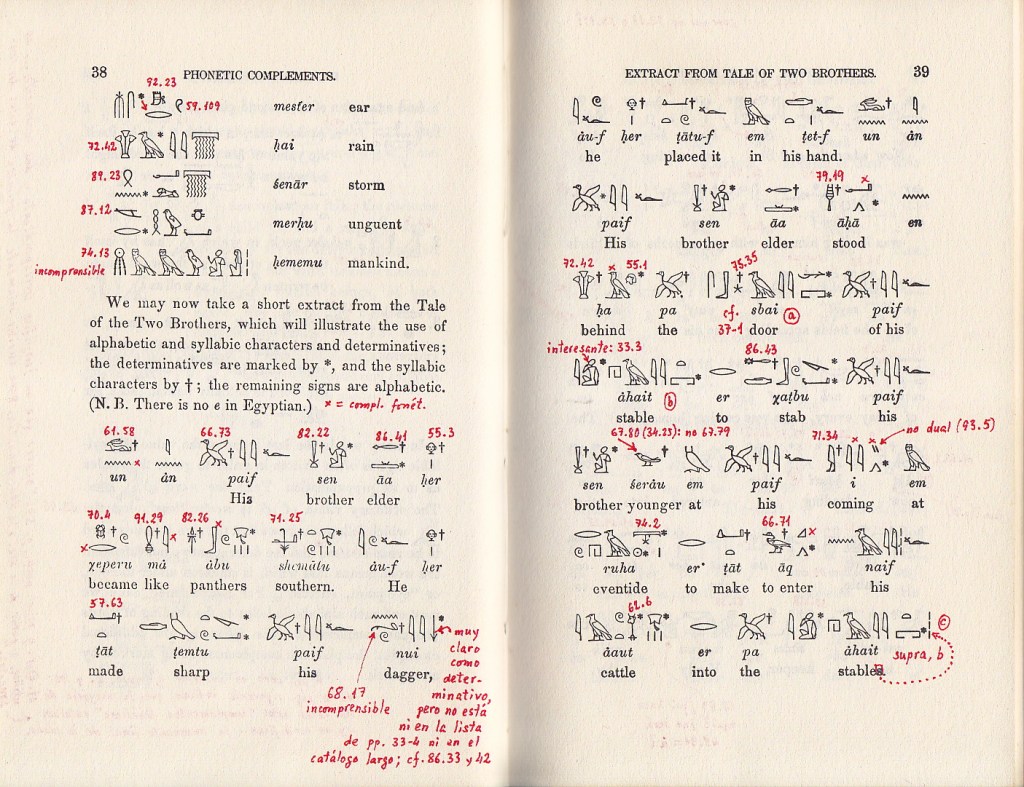 38 PHONETIC COMPLEMENTS.
92.23
59.109
mesṭer ear
72.42
ḥai rain
89.23
śenār storm
87.12
merḥu unguent
74.13
incomprensible
ḥememu mankind.
We may now take a short extract from the Tale
of the Two Brothers, which will illustrate the use of
alphabetic and syllabic characters and determinatives;
the determinatives are marked by *, and the syllabic
characters by †; the remaining signs are alphabetic.
(N. B. There is no e in Egyptian.) × = compl. fonét.
61.58 66.73 82.22 86.41 55.3
un ȧn paif sen āa ḥer
His brother elder
70.4 91.29 82.26 71.25
χeperu mȧ ȧbu shemātu ȧu-f ḥer
became like panthers southern. He
57.63
ṭāt ṭemtu paif nui
made sharp his dagger,
68.17
incomprensible
muy
claro
como
deter-
minativo,
pero no está
ni en la lista
de pp. 33-4 ni en el
catálogo largo; cf. 86.33 y 42
EXTRACT FROM TALE OF TWO BROTHERS. 39
ȧu-f ḥer ṭātu-f em ṭet-f un ȧn
he placed it in his hand.
79.19 ×
paif sen āa āḥā en
His brother elder stood
72.42 × 55.1 75.35
ḥa pa cf. sbai (a) paif
behind the 37-1 door of his
interesante: 33.3 86.43
ȧhait (b) er χaṭbu paif
stable to stab his
67.80 (34.23): no 67.79 71.34 × × no dual (93.5)
sen śerȧu em paif i em
brother younger at his coming at
74.2 66.71 ×
ruha er ṭāt āq naif
eventide to make to enter his
62.6
ȧaut er pa ȧhait (c)
cattle into the stables.
supra, b